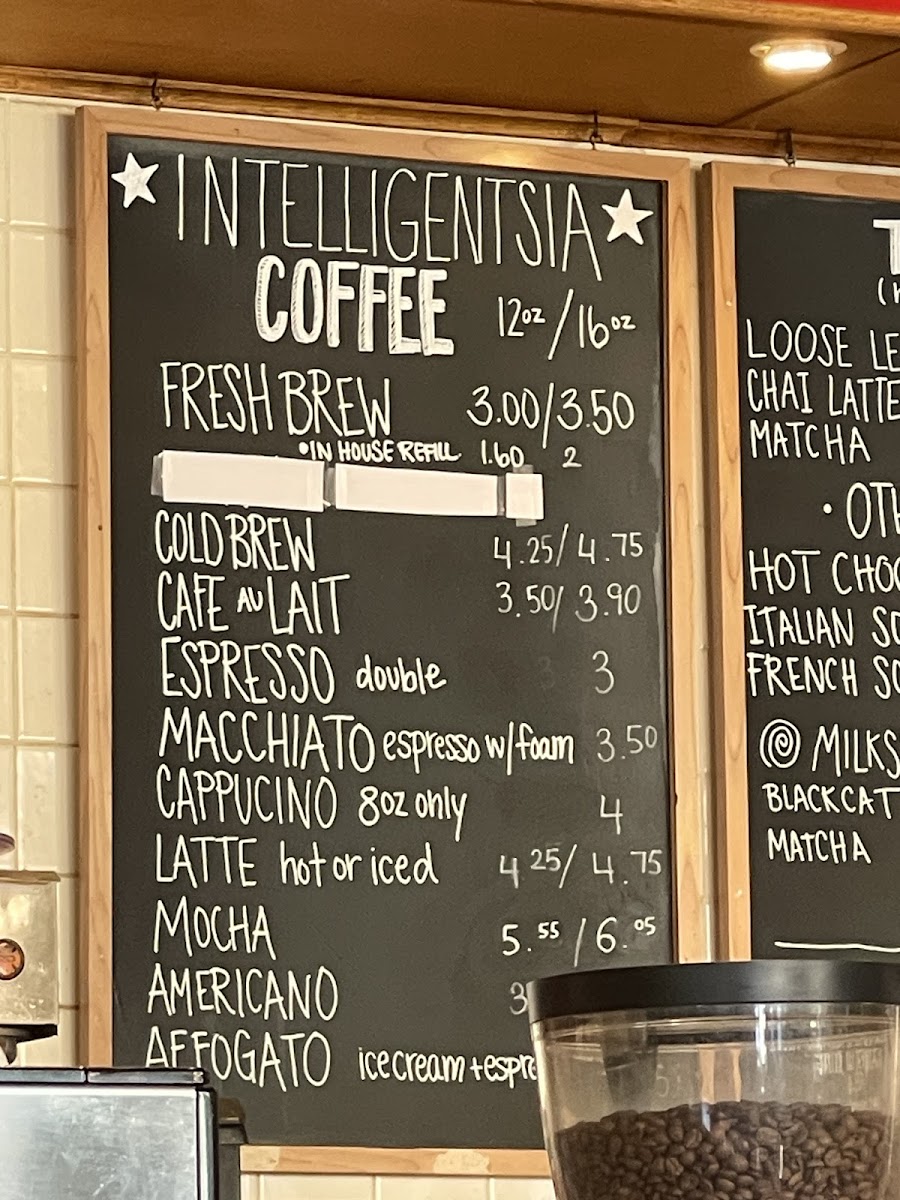 INTELLIGENTSIA
COFFEE 12oz/16oz
FRESH BREW 3.00/3.50
•IN HOUSE REFILL 1.60 2
COLD BREW 4.25/4.75
CAFE AU LAIT 3.50/3.90
ESPRESSO double 3
MACCHIATO espresso w/foam 3.50
CAPPUCINO 8oz only 4
LATTE hot or iced 4.25/4.75
MOCHA 5.55/6.05
AMERICANO 3
AFFOGATO ice cream + espre
LOOSE LE
CHAI LATTE
MATCHA
• OTH
HOT CHOC
ITALIAN SO
FRENCH SO
MILKS
BLACK CAT
MATCHA